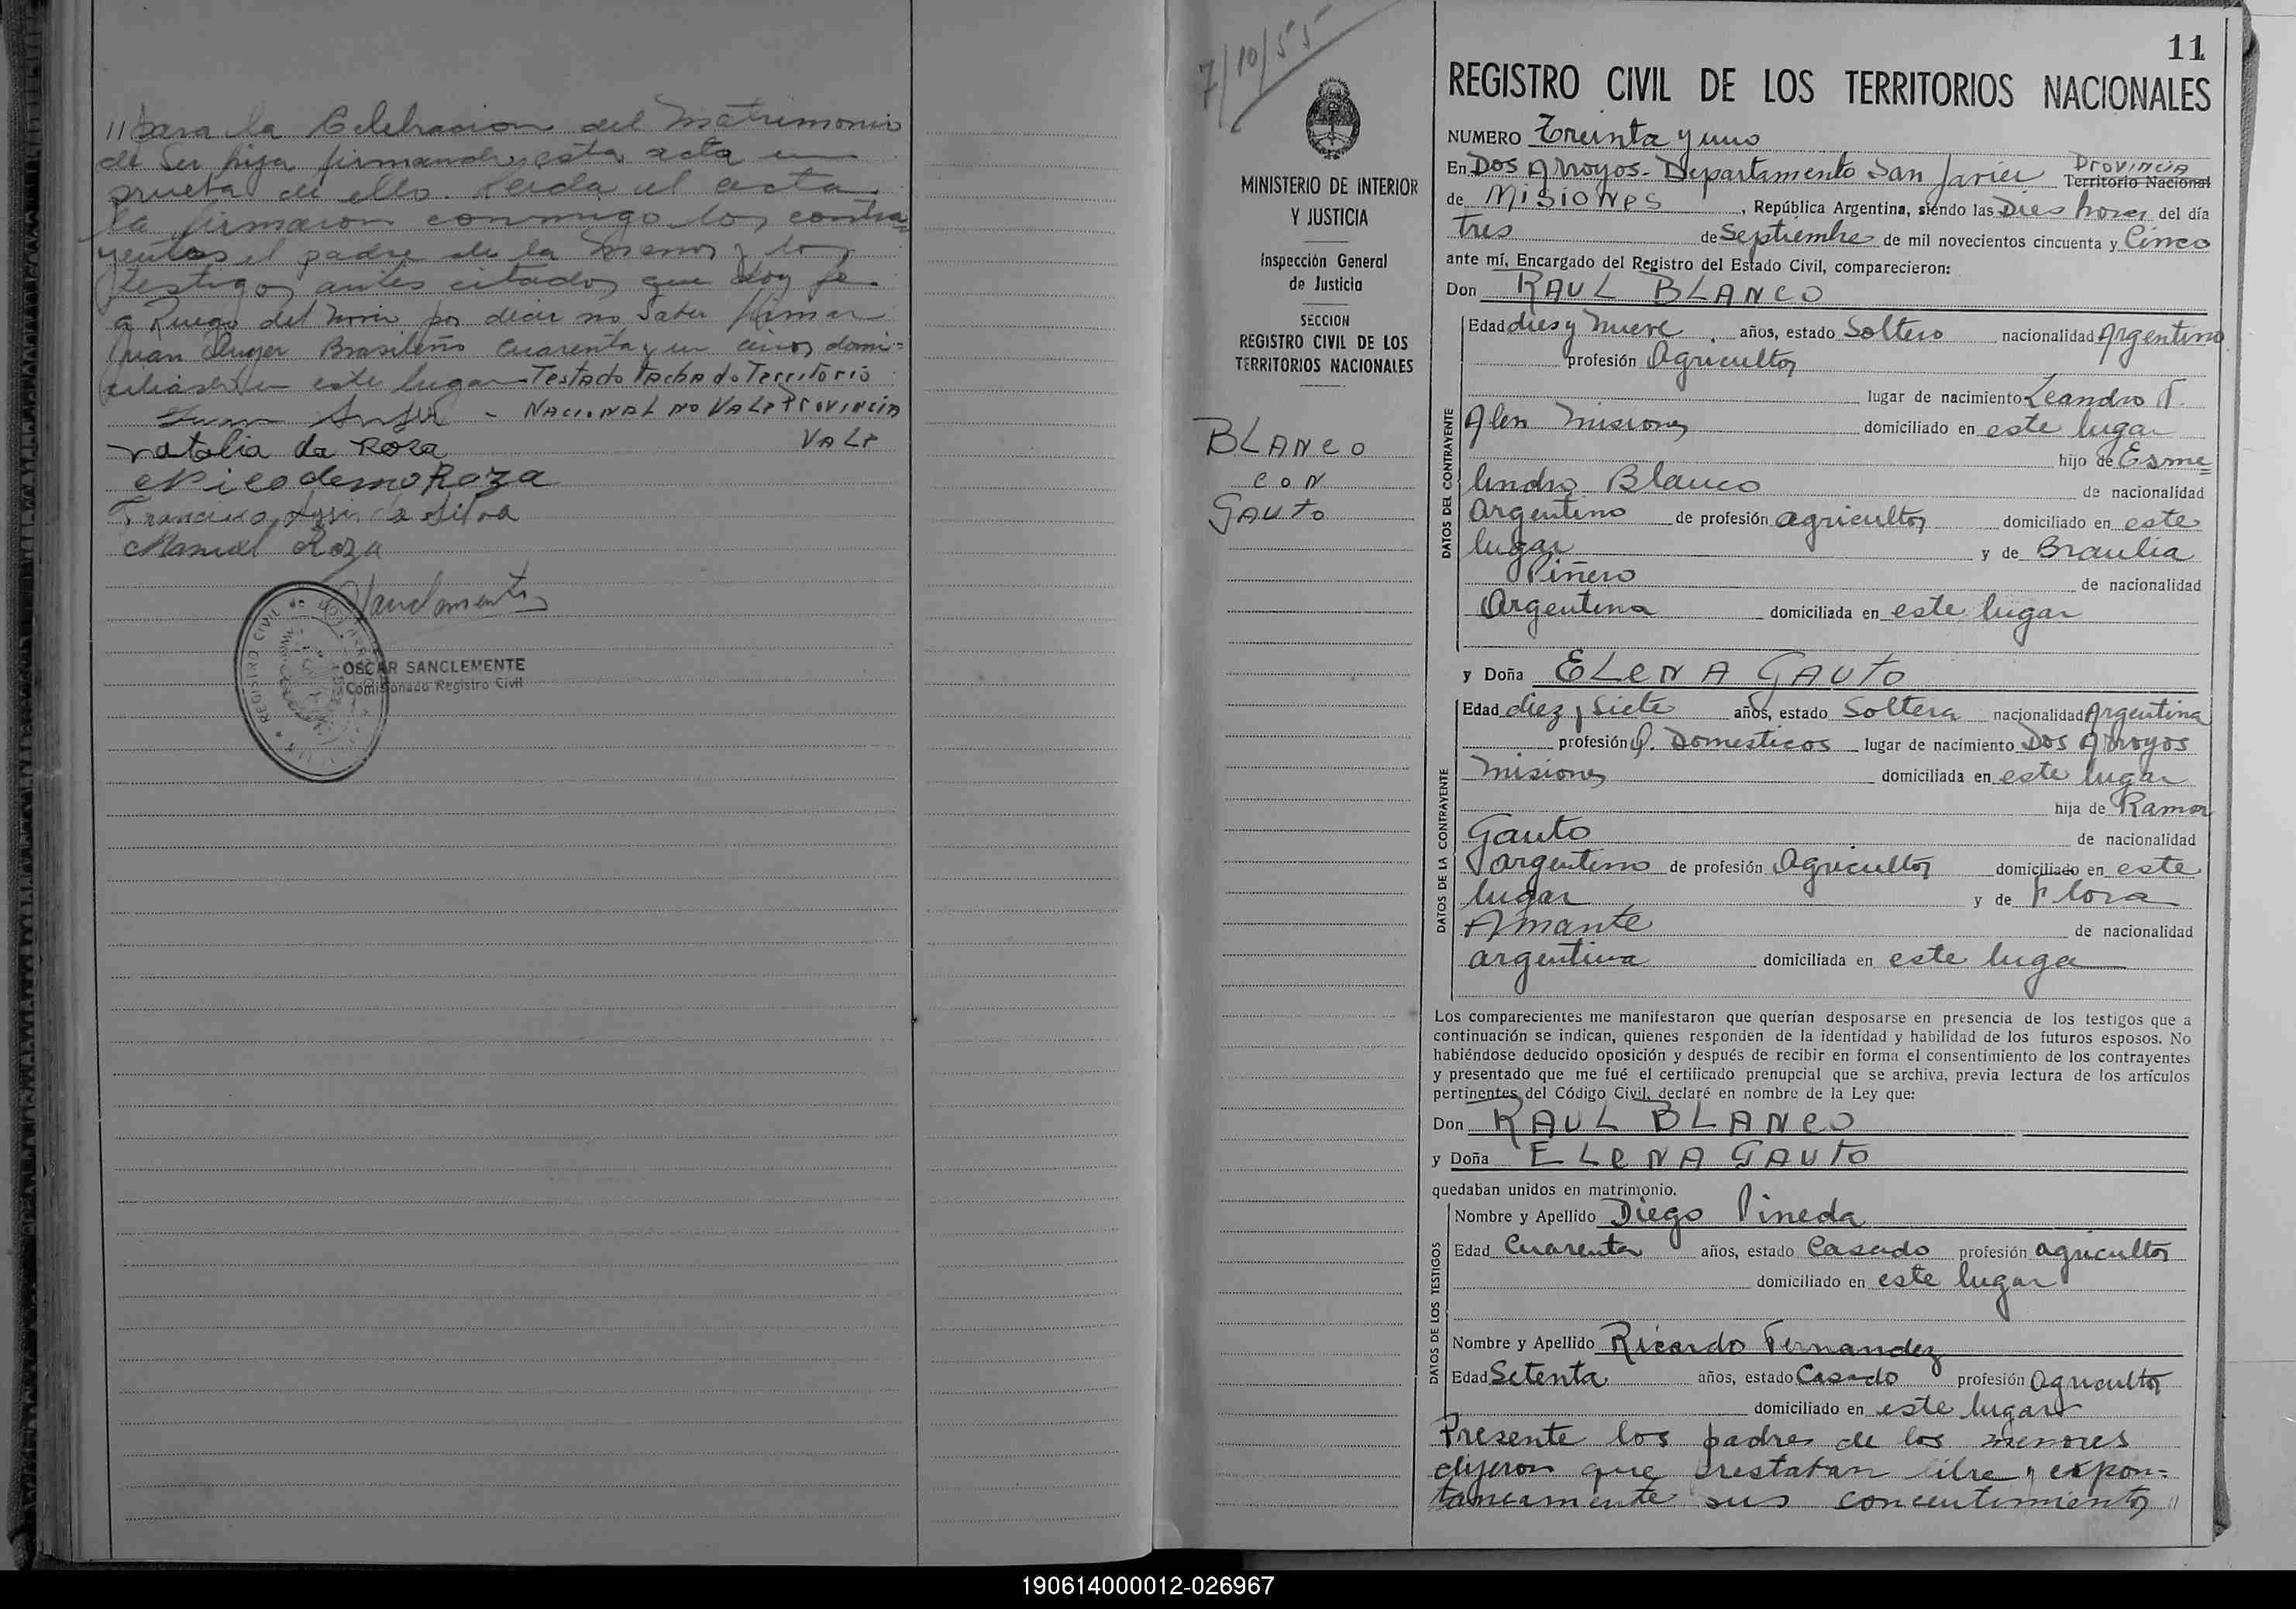 // para la Celebracion del Matrimonio
de su hija firmando esta acta en
prueba de ello. Leida el acta
la firmaron conmigo los contra=
yentes el padre de la menor y los
testigos antes citados que doy fe
a Ruego del novio por decir no saber firmar
Juan Brasileño cuarenta y un años domi=
ciliado en este lugar - Testado tachado Territorio
NACIONAL NO VALE PROVINCIA
VALE
Natalia da Roza
Nicodemo Roza
Francisco da Silva
Manuel Roza
Sanclemente
REGISTRO CIVIL de DOS
OSCAR SANCLEMENTE
Comisionado Registro Civil
7/10/55
MINISTERIO DE INTERIOR
Y JUSTICIA
Inspección General
de Justicia
SECCION
REGISTRO CIVIL DE LOS
TERRITORIOS NACIONALES
BLANCO
CON
GAUTO
11
REGISTRO CIVIL DE LOS TERRITORIOS NACIONALES
NUMERO Treinta y uno
En Dos Arroyos - Departamento San Javier Provincia Territorio Nacional
de Misiones, República Argentina, siendo las Dies horas del día
Tres de Septiembre de mil novecientos cincuenta y Cinco
ante mí, Encargado del Registro del Estado Civil, comparecieron:
Don RAUL BLANCO
DATOS DEL CONTRAYENTE
Edad dies y nueve años, estado Soltero nacionalidad Argentino
profesión Agricultor
lugar de nacimiento Leandro N.
Alen Misiones domiciliado en este lugar
hijo de Esme=
lindro Blanco de nacionalidad
Argentino de profesión agricultor domiciliado en este
lugar y de Braulia
Piñero de nacionalidad
Argentina domiciliada en este lugar
y Doña ELENA GAUTO
DATOS DE LA CONTRAYENTE
Edad diez y siete años, estado Soltera nacionalidad Argentina
profesión Q. Domesticos lugar de nacimiento Dos Arroyos
Misiones domiciliada en este lugar
hija de Ramon
Gauto de nacionalidad
argentino de profesión Agricultor domiciliado en este
lugar y de Flora
Amante de nacionalidad
argentina domiciliada en este lugar
Los comparecientes me manifestaron que querían desposarse en presencia de los testigos que a
continuación se indican, quienes responden de la identidad y habilidad de los futuros esposos. No
habiéndose deducido oposición y después de recibir en forma el consentimiento de los contrayentes
y presentado que me fué el certificado prenupcial que se archiva, previa lectura de los artículos
pertinentes del Código Civil, declaré en nombre de la Ley que:
Don RAUL BLANCO
y Doña ELENA GAUTO
quedaban unidos en matrimonio.
DATOS DE LOS TESTIGOS
Nombre y Apellido Diego Pineda
Edad Cuarenta años, estado Casado profesión agricultor
domiciliado en este lugar
Nombre y Apellido Ricardo Fernandez
Edad Setenta años, estado Casado profesión Agricultor
domiciliado en este lugar
Presente los padres de los menores
dijeron que prestaban libre y expon=
taneamente sus concentimientos //
190614000012-026967